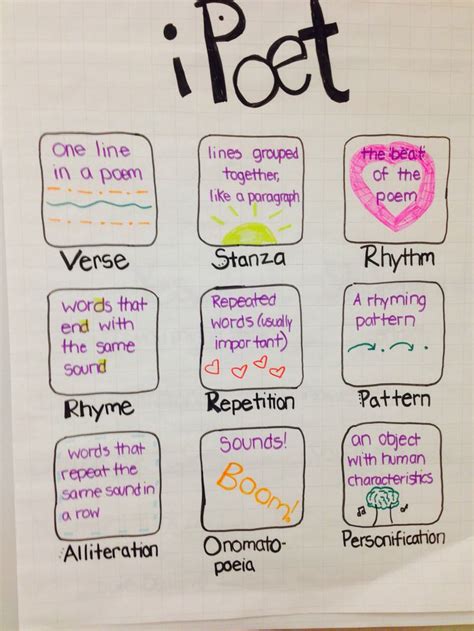 i Poet
One line
in a poem
Verse
lines grouped
together,
like a paragraph
Stanza
the beat
of the
poem
Rhythm
words that
end with
the same
sound
Rhyme
Repeated
words (usually
important)
Repetition
A rhyming
pattern
Pattern
words that
repeat the
same sound in
a row
Alliteration
Sounds!
Boom!
Onomato-
poeia
an object
with human
characteristics
Personification